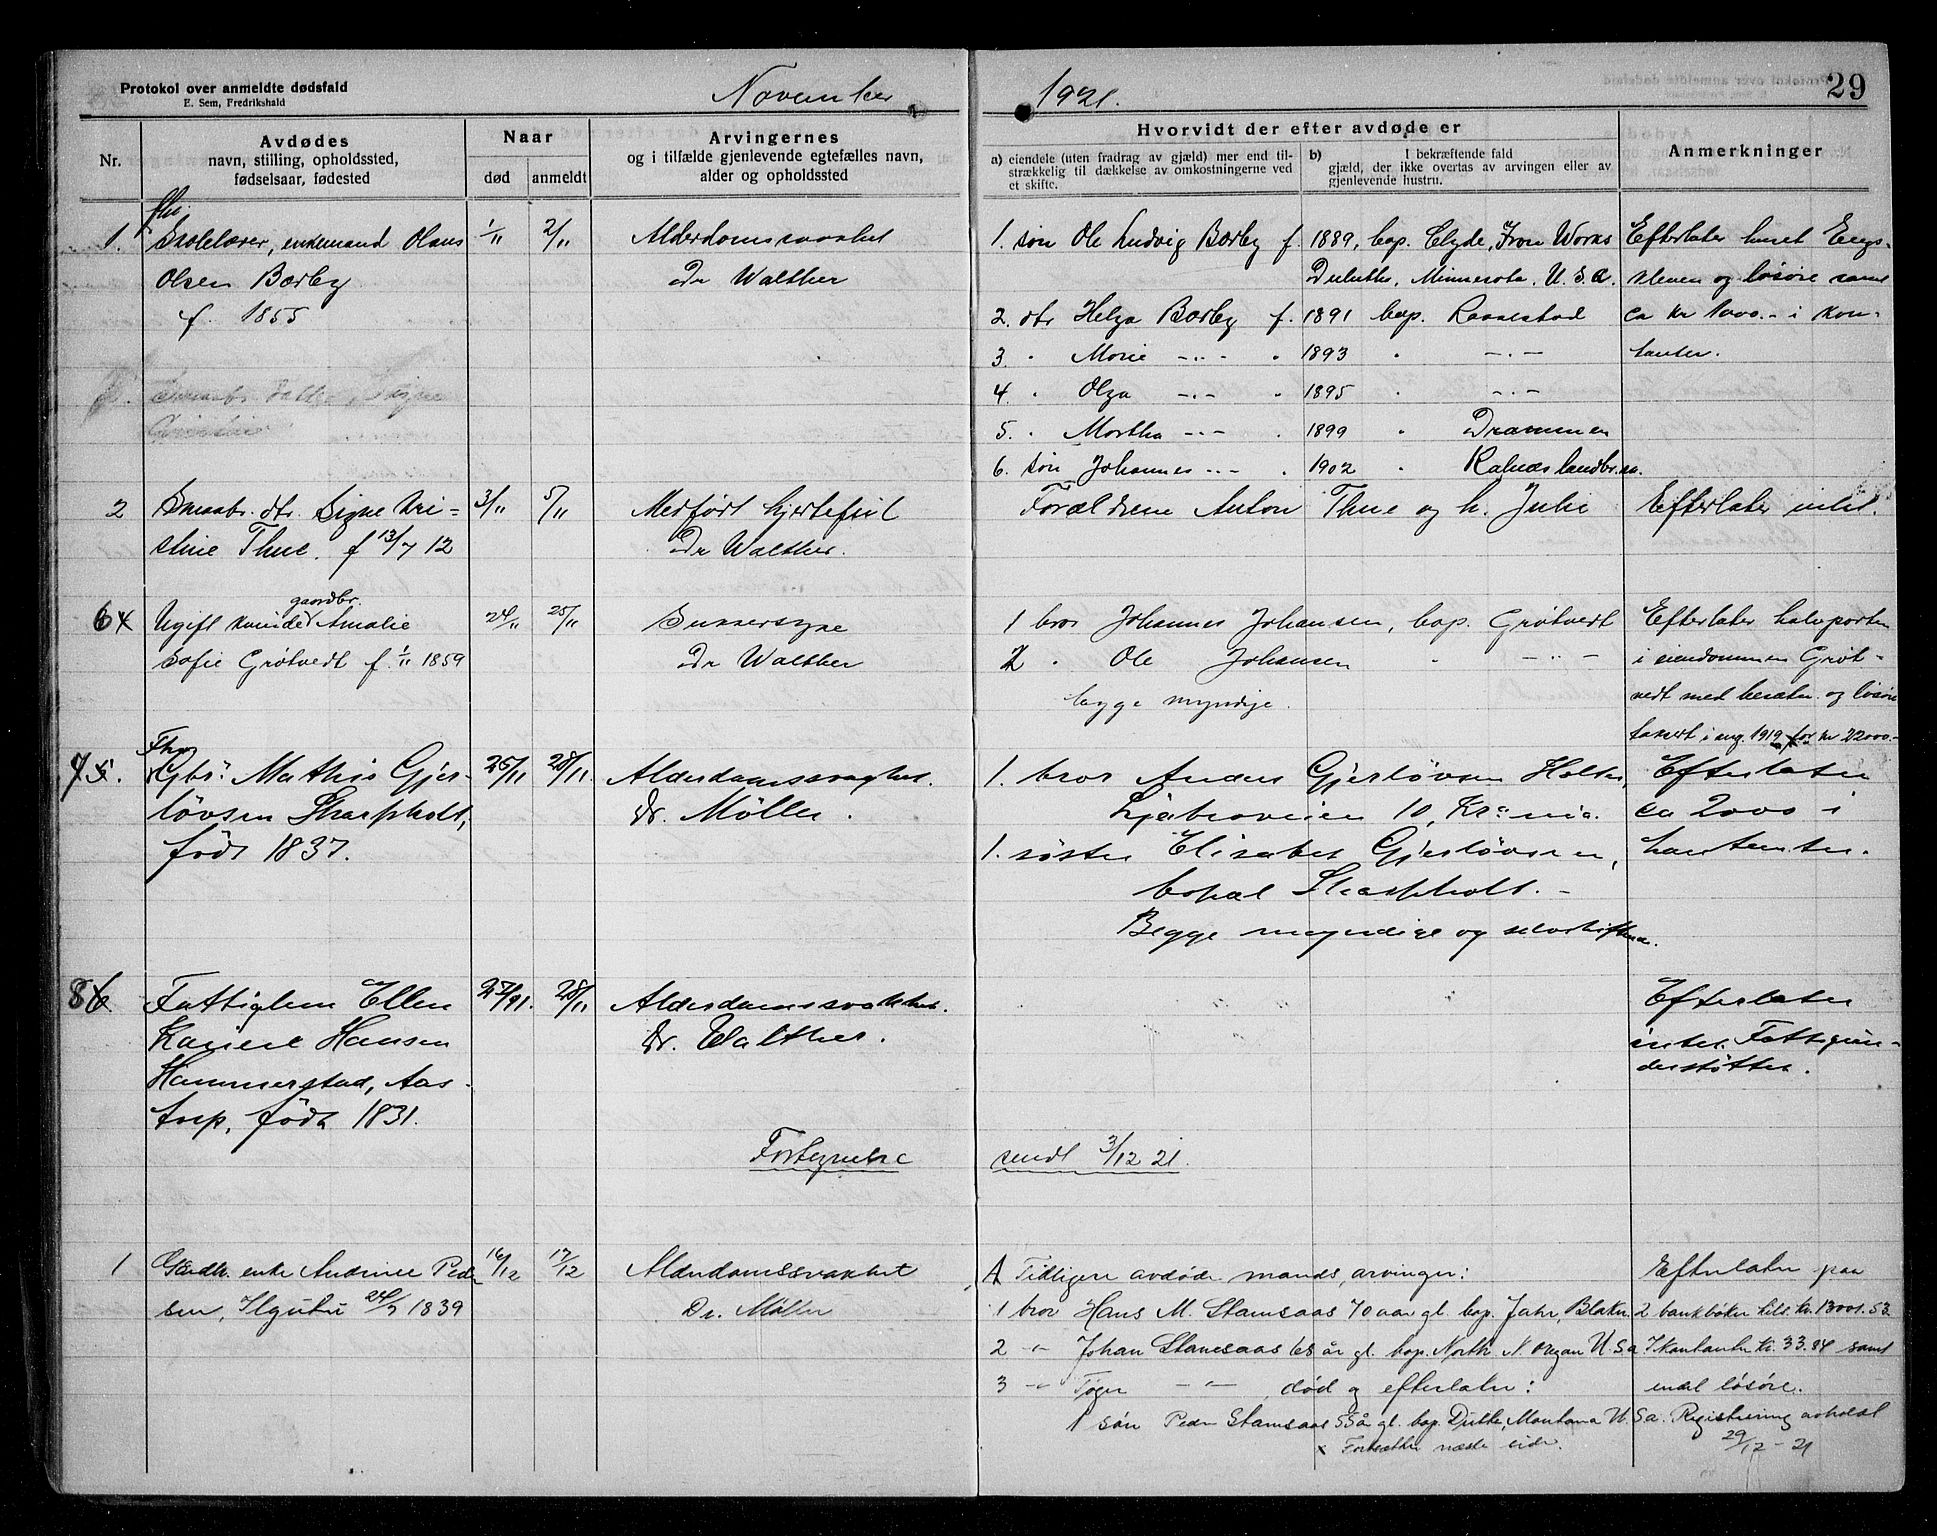 Protokol over anmeldte dødsfald
E. Sem, Fredrikshald
November
1921.
29
Nr.
Avdødes
navn, stilling, opholdssted,
fødselsaar, fødested
Naar
død
anmeldt
Arvingernes
og i tilfælde gjenlevende egtefælles navn,
alder og opholdssted
Hvorvidt der efter avdøde er
a) eiendele (uten fradrag av gjæld) mer end til-
strækkelig til dækkelse av omkostningerne ved
et skifte.
b) I bekræftende fald
gjæld, der ikke overtas av arvingen eller av
gjenlevende hustru.
Anmerkninger
1. Skolelærer, enkemand Olaus
Olsen Børby
f. 1855
1/11
2/11
Alderdomssvakhet
Dr Walther
1. søn Ole Ludvig Børby f. 1889, bop. Clyde, Iron Works
Duluth, Minnesota, U.S.A.
2. dtr Helga Børby f. 1891 bop. Raaelstad
3 " Marie -"- " 1893 " -"-
4 " Olga -"- " 1895 " -"-
5. " Martha -"- " 1899 " Drammen
6. søn Johannes -"- " 1902 " Kalnæs landbr.sk.
Efterlater huset Engs-
kleven og løsøre samt
ca kr 1000.- i kon-
tanter.
2 Smaabr. dtr. Signe Kri-
stine Thue. f 13/7 12
3/11
5/11
Medført hjertefeil
Dr Walther.
Forældrene Anton Thue og h. Julie
Efterlater intet.
6 4 Ugift kvinde gaardbr. Amalie
Sofie Grøtvedt f. 1/11 1859
24/11
25/11
Sukkersyke
Dr Walther
1 bror Johannes Johansen, bop. Grøtvedt
2 " Ole Johansen " -"-
begge myndige.
Efterlater halvparten
i eiendommen Grøt-
vedt med besætn. og løsøre
taxert i aug. 1919 for kr 22000.-
7 5. Fhv. Gbr. Mathis Gjer-
løvsen Skarpholt,
født 1837.
25/11
28/11.
Alderdomssvaghet.
Dr. Møller.
1. bror Anders Gjerløvsen Holter,
Ljabroveien 10, Kr.a nia.
1. søster Elisabet Gjerløvsen,
bopæl Skarpholt. -
Begge myndige og selvskiftende.
Efterlater
ca 2000 i
kontanter.
8 6 Fattiglem Ellen
Karine Hansen
Hammerstad, Aas-
torp, født 1831.
28/11
Alderdomssvakhet.
Dr. Walther.
Efterlater
intet. Fattigun-
derstøttet.
Fortegnelse
sendt 3/12 21.
1 Gaardbr. enke Andrine Peder
sen, 24/7 1839
16/12
17/12
Alderdomssvakhet
Dr. Møller
A Tidligere avdøde mands, arvinger:
1 bror Hans M. Stamsaas 70 aar gl. bop. Jahr, Blaker
2 -"- Johan Stamsaas 68 år gl. bop. North U.S.a
3 -"- Tøger -"- , død og efterlater:
1 søn Peder Stamsaas 55 år gl. bop. Dutte, Montana U.S.a.
x Fortsætter næste side.
Efterlater paa
2 bankbøker tils. kr. 13001.53
I kontanter kr. 33.84 samt
endel løsøre.
Registrering avholdt
29/12 - 21